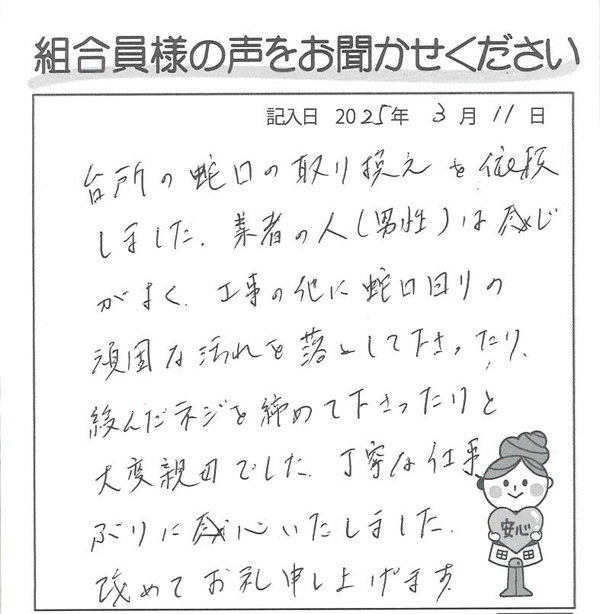 組合員様の声をお聞かせください
記入日 2025年 3月 11日
台所の蛇口の取り換えを依頼
しました。業者の人(男性)は感じ
がよく、工事の他に蛇口回りの
頑固な汚れを落として下さったり、
緩んだネジを締めて下さったりと
大変親切でした。丁寧な仕事
ぶりに感心いたしました。
改めてお礼申し上げます。
安心